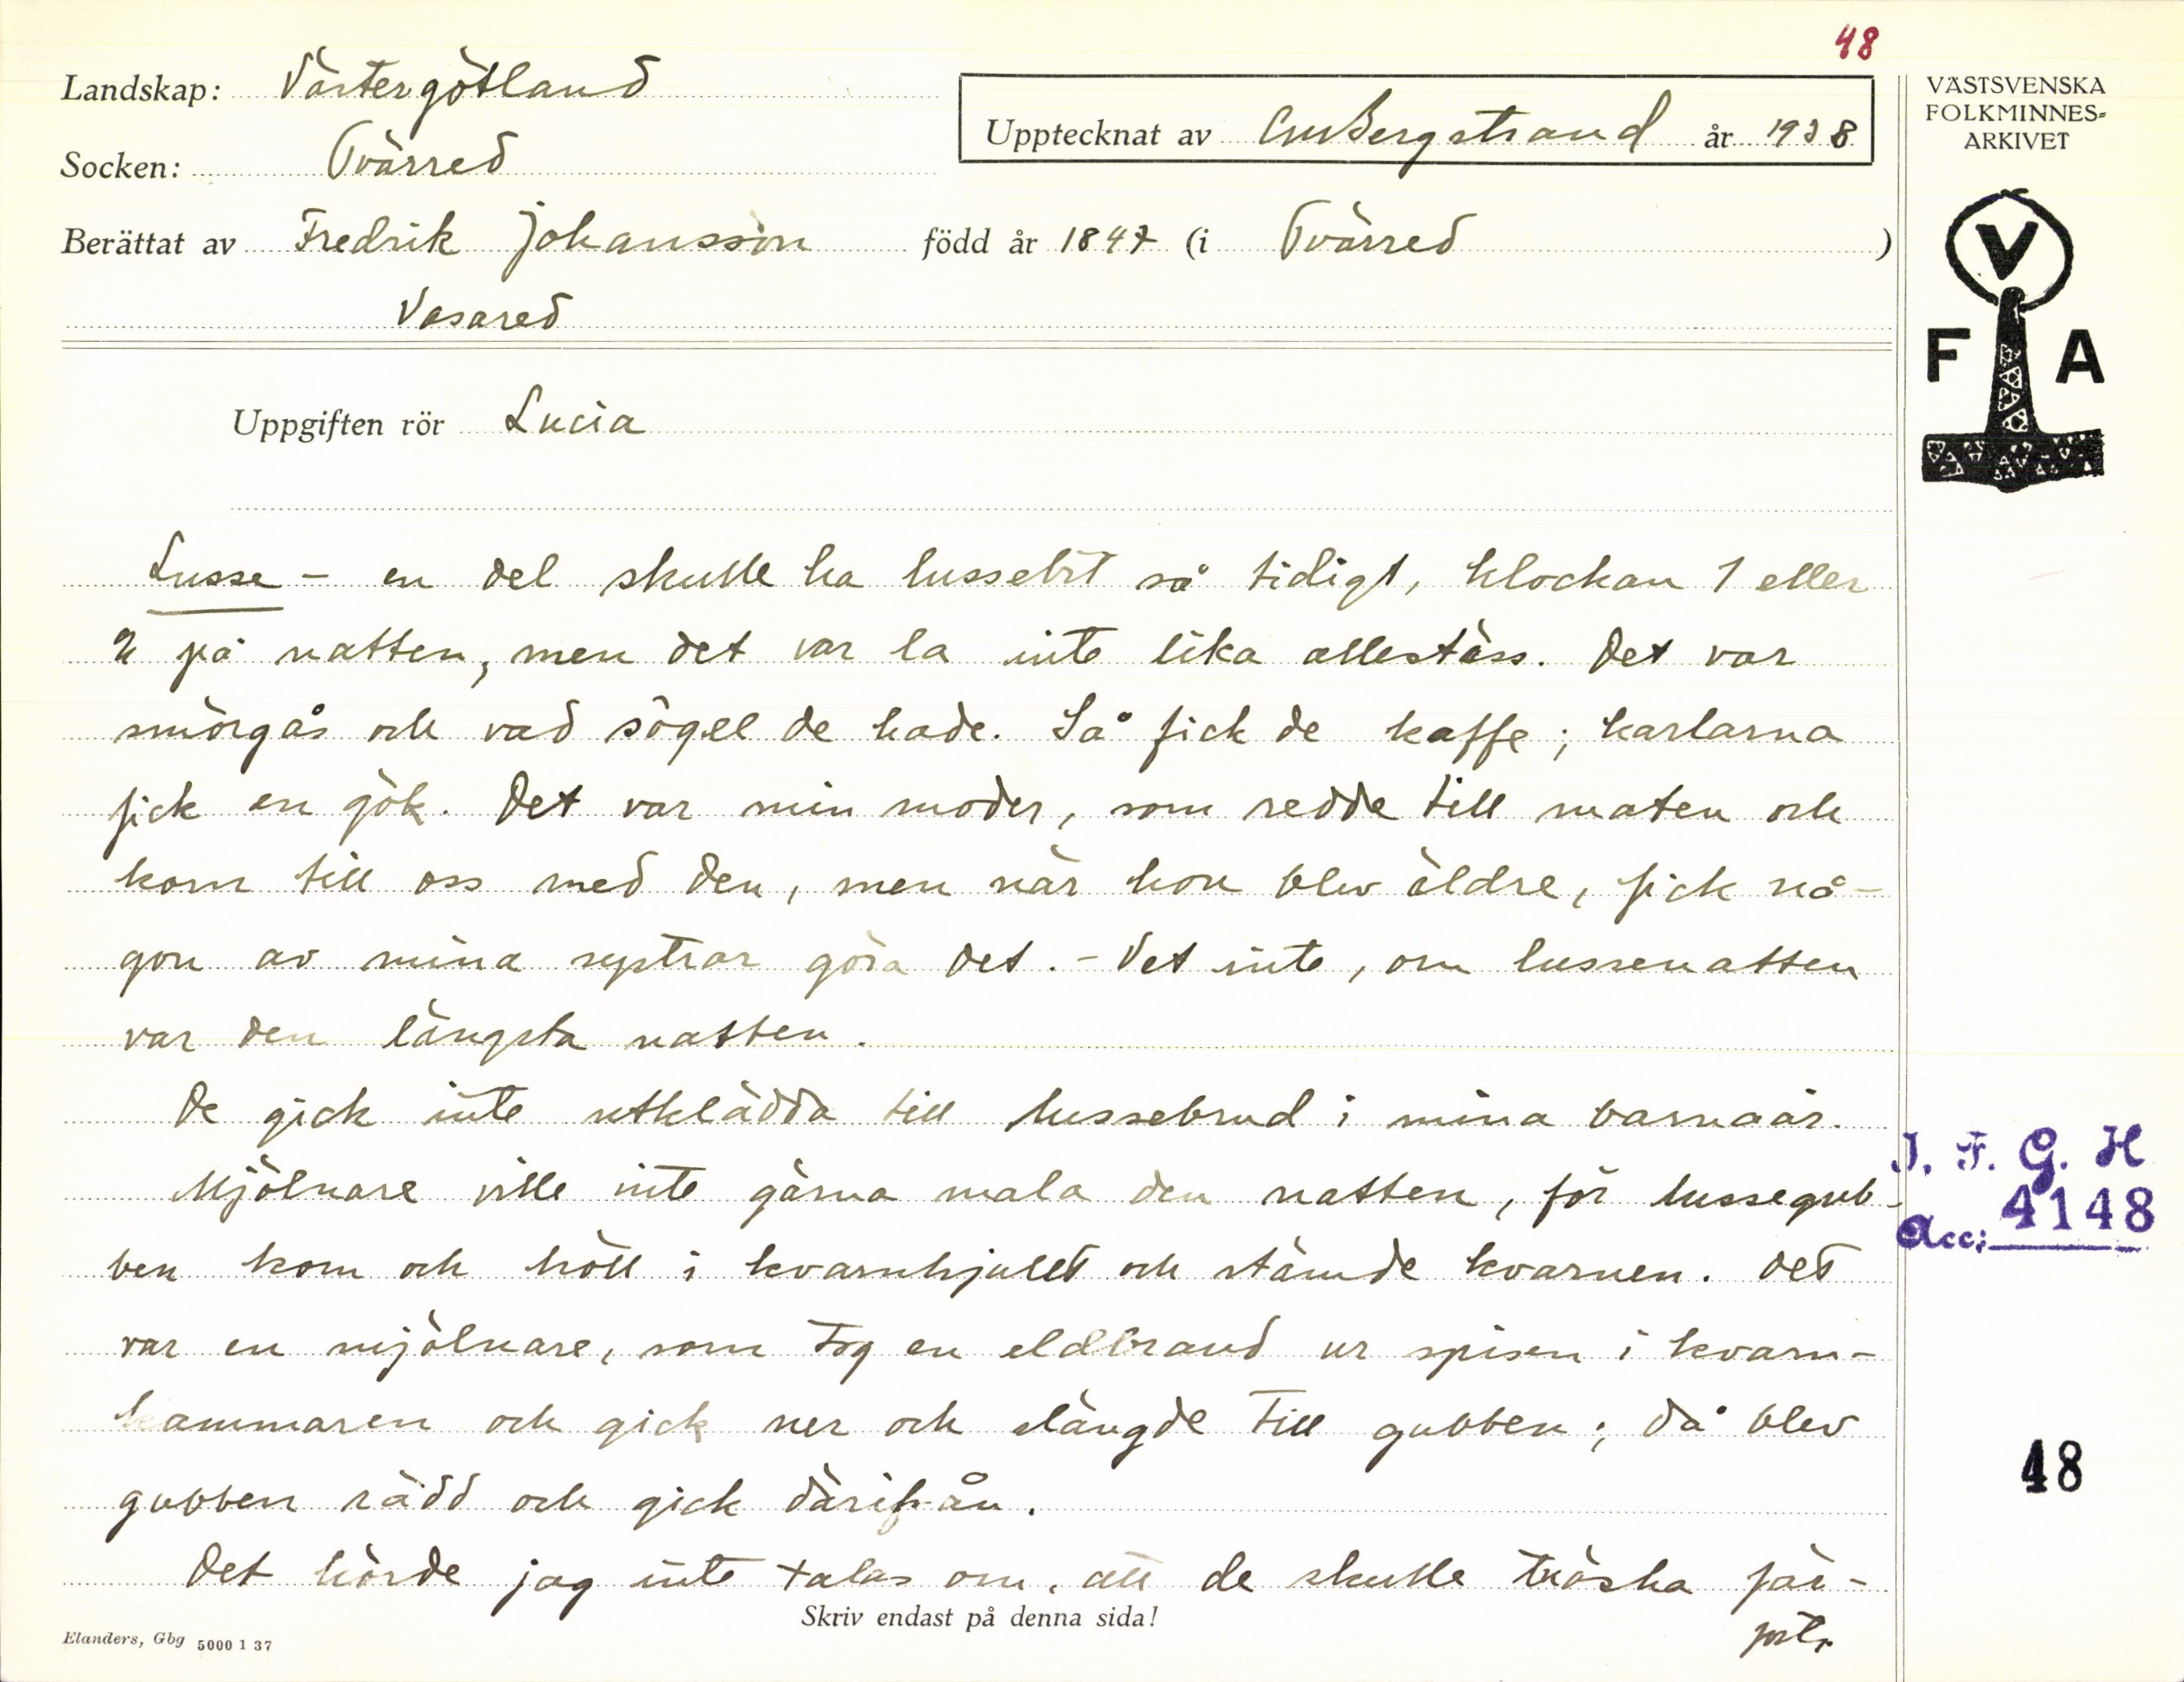 48
Landskap: Västergötland
Upptecknat av CM Bergstrand år 1938
Socken: Tvärred
Berättat av Fredrik Johansson född år 1847 (i Tvärred )
Vasared
VÄSTSVENSKA
FOLKMINNES=
ARKIVET
V
F A
Uppgiften rör Lucia
Lusse - en del skulle ha lussebit så tidigt, klockan 1 eller
2 på natten, men det var la inte lika allestäss. Det var
smörgås och vad sögel de hade. Så fick de kaffe; karlarna
fick en gök. Det var min moder, som redde till maten och
kom till oss med den, men när hon blev äldre, fick nå-
gon av mina systrar göra det. - Vet inte, om lussenatten
var den längsta natten.
De gick inte utklädda till lussebrud i mina barnaår.
Mjölnare ville inte gärna mala den natten, för lussegub-
ben kom och höll i kvarnhjulet och stämde kvarnen. Det
var en mjölnare, som tog en eldbrand ur spisen i kvarn-
kammaren och gick ner och slängde till gubben; då blev
gubben rädd och gick därifrån.
Det hörde jag inte talas om, att de skulle tröska fär-
forts.
Skriv endast på denna sida!
Elanders, Gbg 5000 1 37
I. F. G. H
Acc: 4148
48